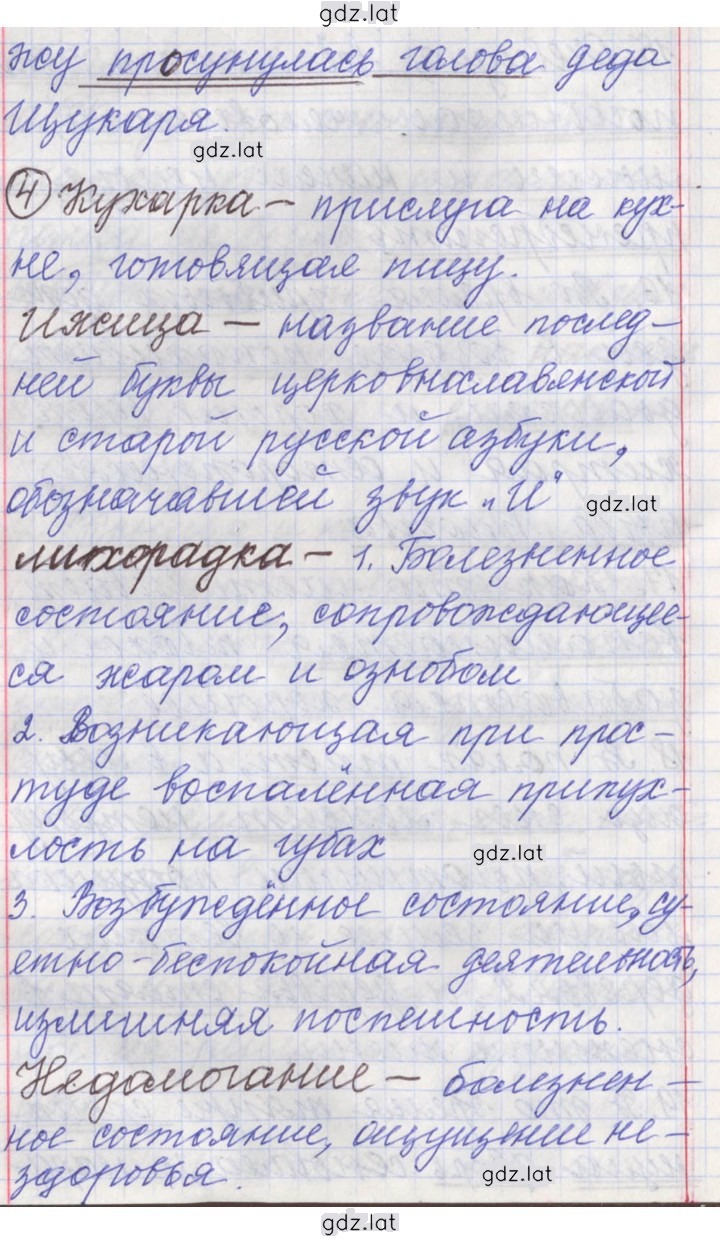 gdz.lat
жу просунулась голова деда
Щукаря.
gdz.lat
④ Кухарка – прислуга на кух-
не, готовящая пищу.
Ижица – название послед-
ней буквы церковнославянской
и старой русской азбуки,
обозначавшей звук „И"
gdz.lat
лихорадка – 1. Болезненное
состояние, сопровождающее-
ся жаром и ознобом
2. Возникающая при прос-
туде воспалённая припух-
лость на губах
gdz.lat
3. Возбуждённое состояние, су-
етно-беспокойная деятельность,
излишняя поспешность.
Недомогание – болезнен-
ное состояние, ощущение не-
здоровья.
gdz.lat
gdz.lat